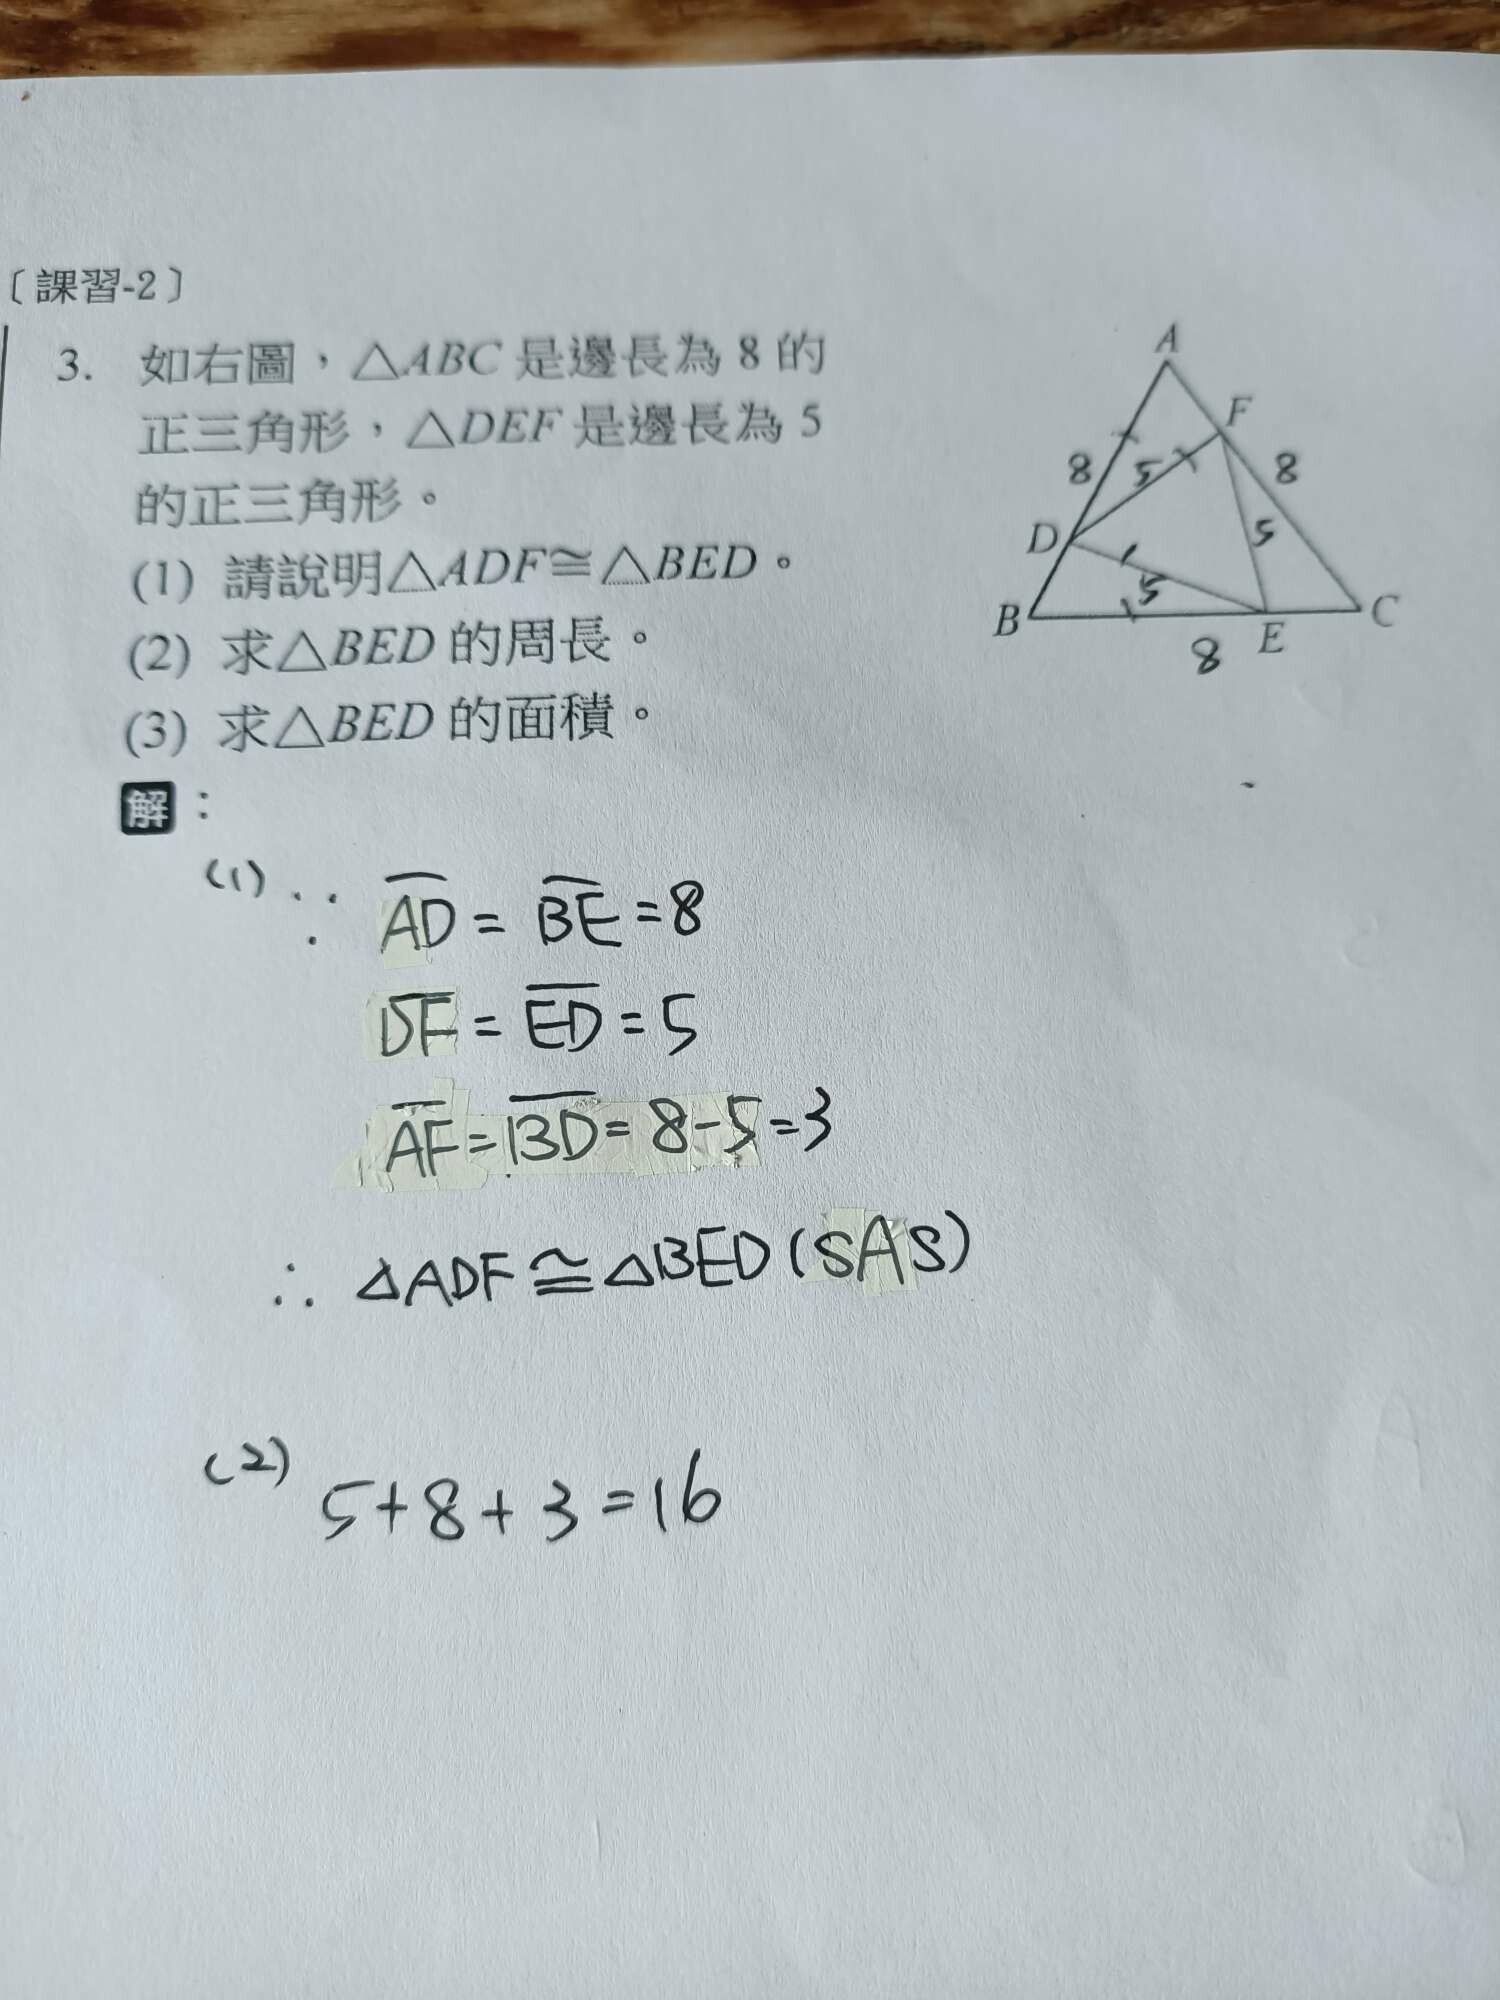 〔課習-2〕
3. 如右圖，△ABC 是邊長為 8 的
正三角形，△DEF 是邊長為 5
的正三角形。
(1) 請說明△ADF≅△BED。
(2) 求△BED 的周長。
(3) 求△BED 的面積。
A
F
8
5
8
D
5
5
B
E
C
8
解：
(1) ∵ A̅D̅ = B̅E̅ = 8
D̅F̅ = E̅D̅ = 5
A̅F̅ = B̅D̅ = 8-5=3
∴ △ADF ≅ △BED (SAS)
(2) 5+8+3=16